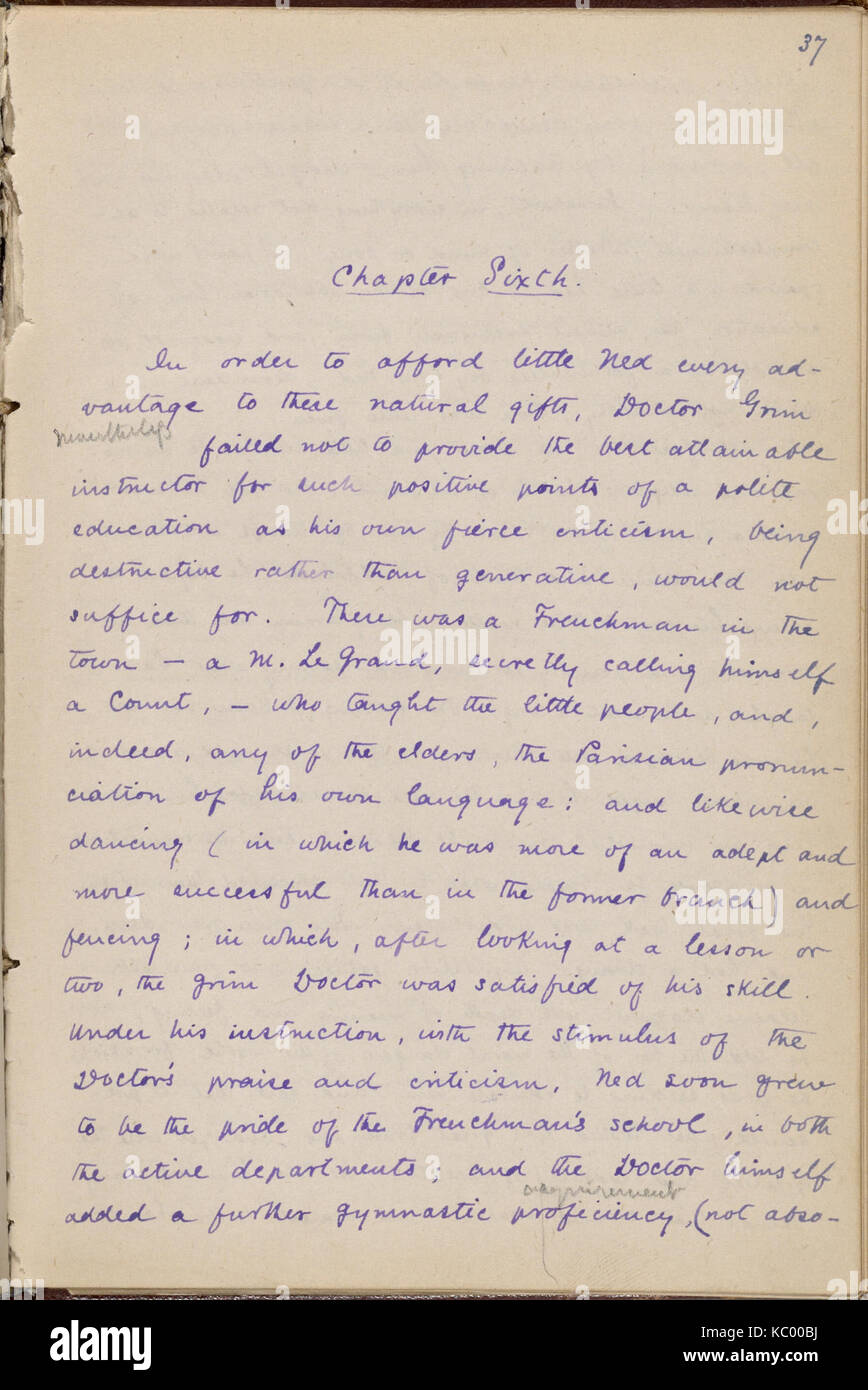 37
Chapter Sixth.
In order to afford little Ned every ad-
vantage to these natural gifts, Doctor Grim
nevertheless
failed not to provide the best attainable
instructor for such positive points of a polite
education as his own fierce criticism, being
destructive rather than generative, would not
suffice for. There was a Frenchman in the
town — a M. Le Grand, secretly calling himself
a Count, — who taught the little people, and,
indeed, any of the elders, the Parisian pronun-
ciation of his own language; and likewise
dancing (in which he was more of an adept and
more successful than in the former branch) and
fencing; in which, after looking at a lesson or
two, the grim Doctor was satisfied of his skill.
Under his instruction, with the stimulus of the
Doctor's praise and criticism, Ned soon grew
to be the pride of the Frenchman's school, in both
the active departments; and the Doctor himself
acquirement
added a further gymnastic proficiency, (not abso-
alamy
Image ID: KC00BJ
www.alamy.com